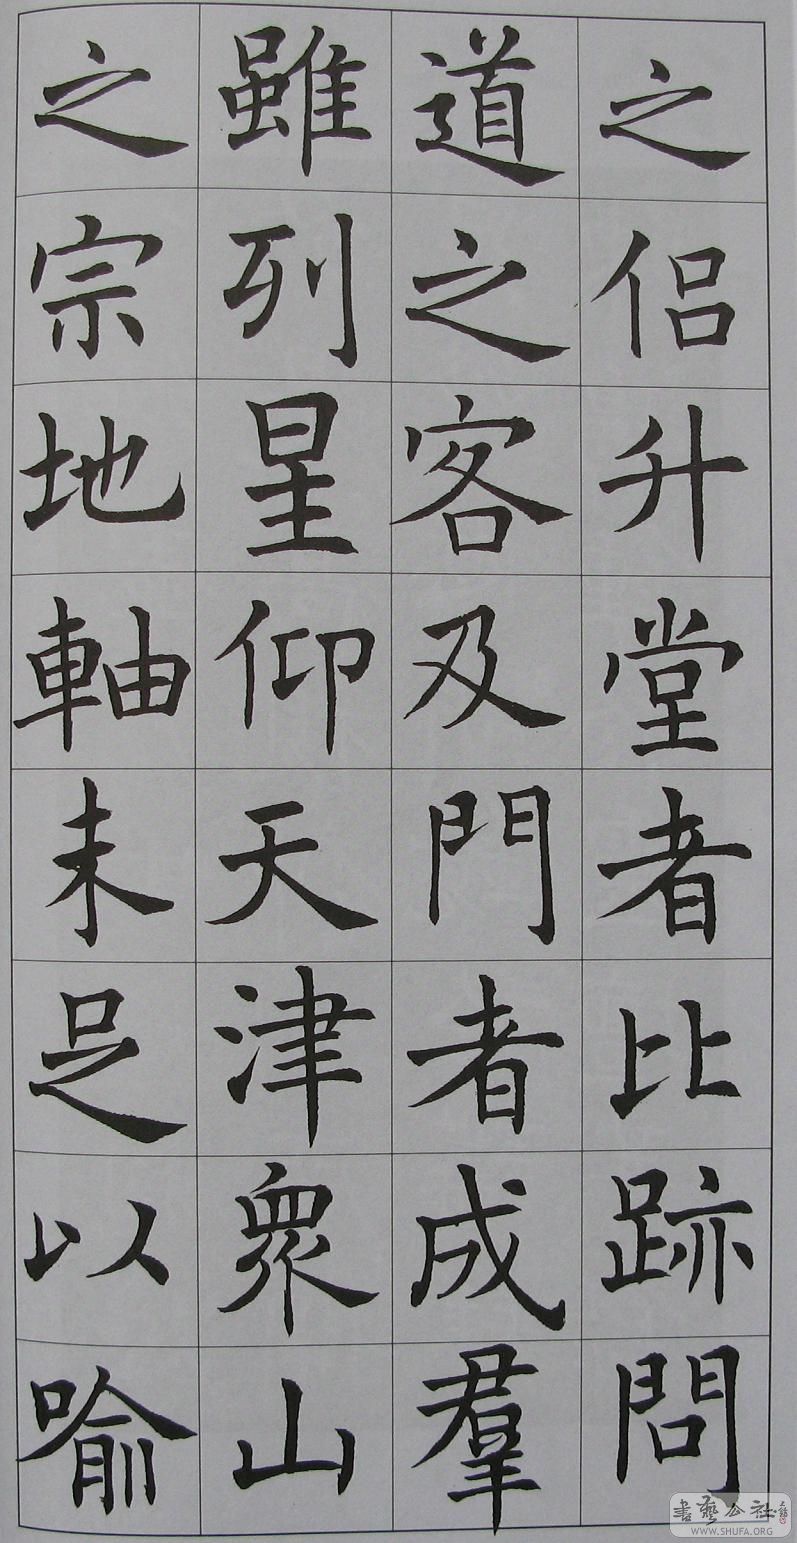 之侶升堂者比跡問
道之客及門者成羣
雖列星仰天津衆山
之宗地軸未足以喻
書藝公社
WWW.SHUFA.ORG